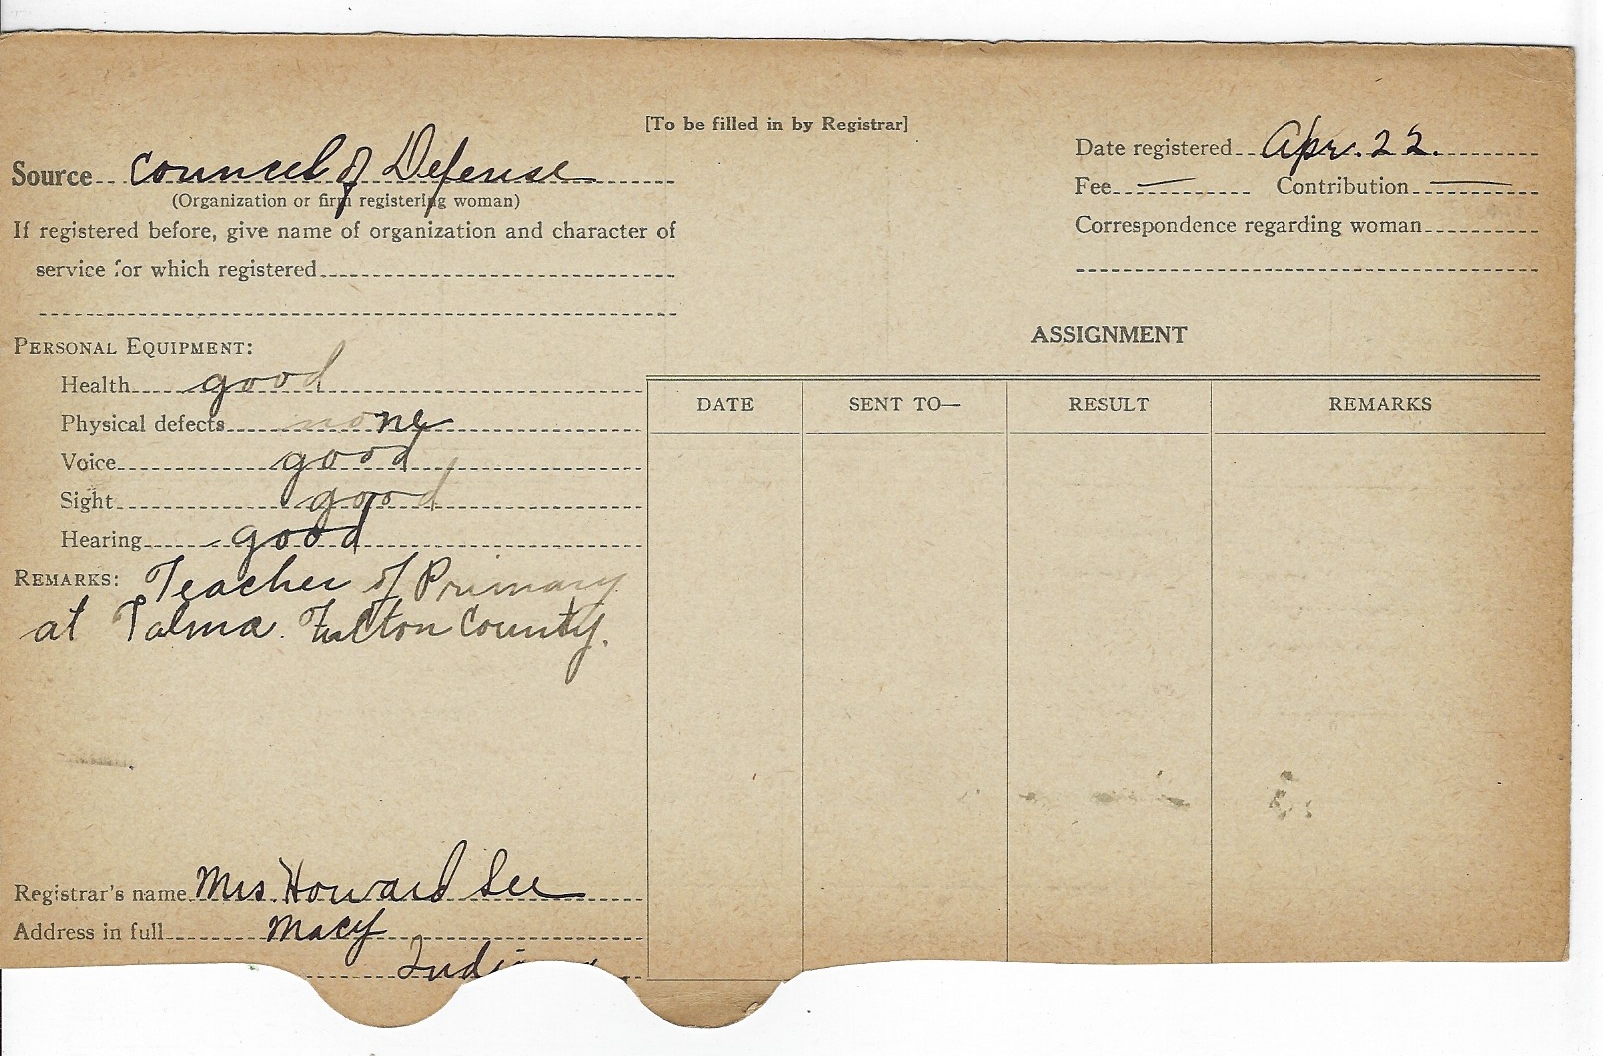 [To be filled in by Registrar]
Source Councel of Defense
(Organization or firm registering woman)
If registered before, give name of organization and character of
service for which registered
Date registered Apr. 22.
Fee — Contribution —
Correspondence regarding woman
PERSONAL EQUIPMENT:
Health good
Physical defects none
Voice good
Sight good
Hearing good
REMARKS: Teacher of Primary
at Talma. Fulton County.
Registrar's name Mrs. Howard See
Address in full Macy
Indiana
ASSIGNMENT
DATE SENT TO— RESULT REMARKS